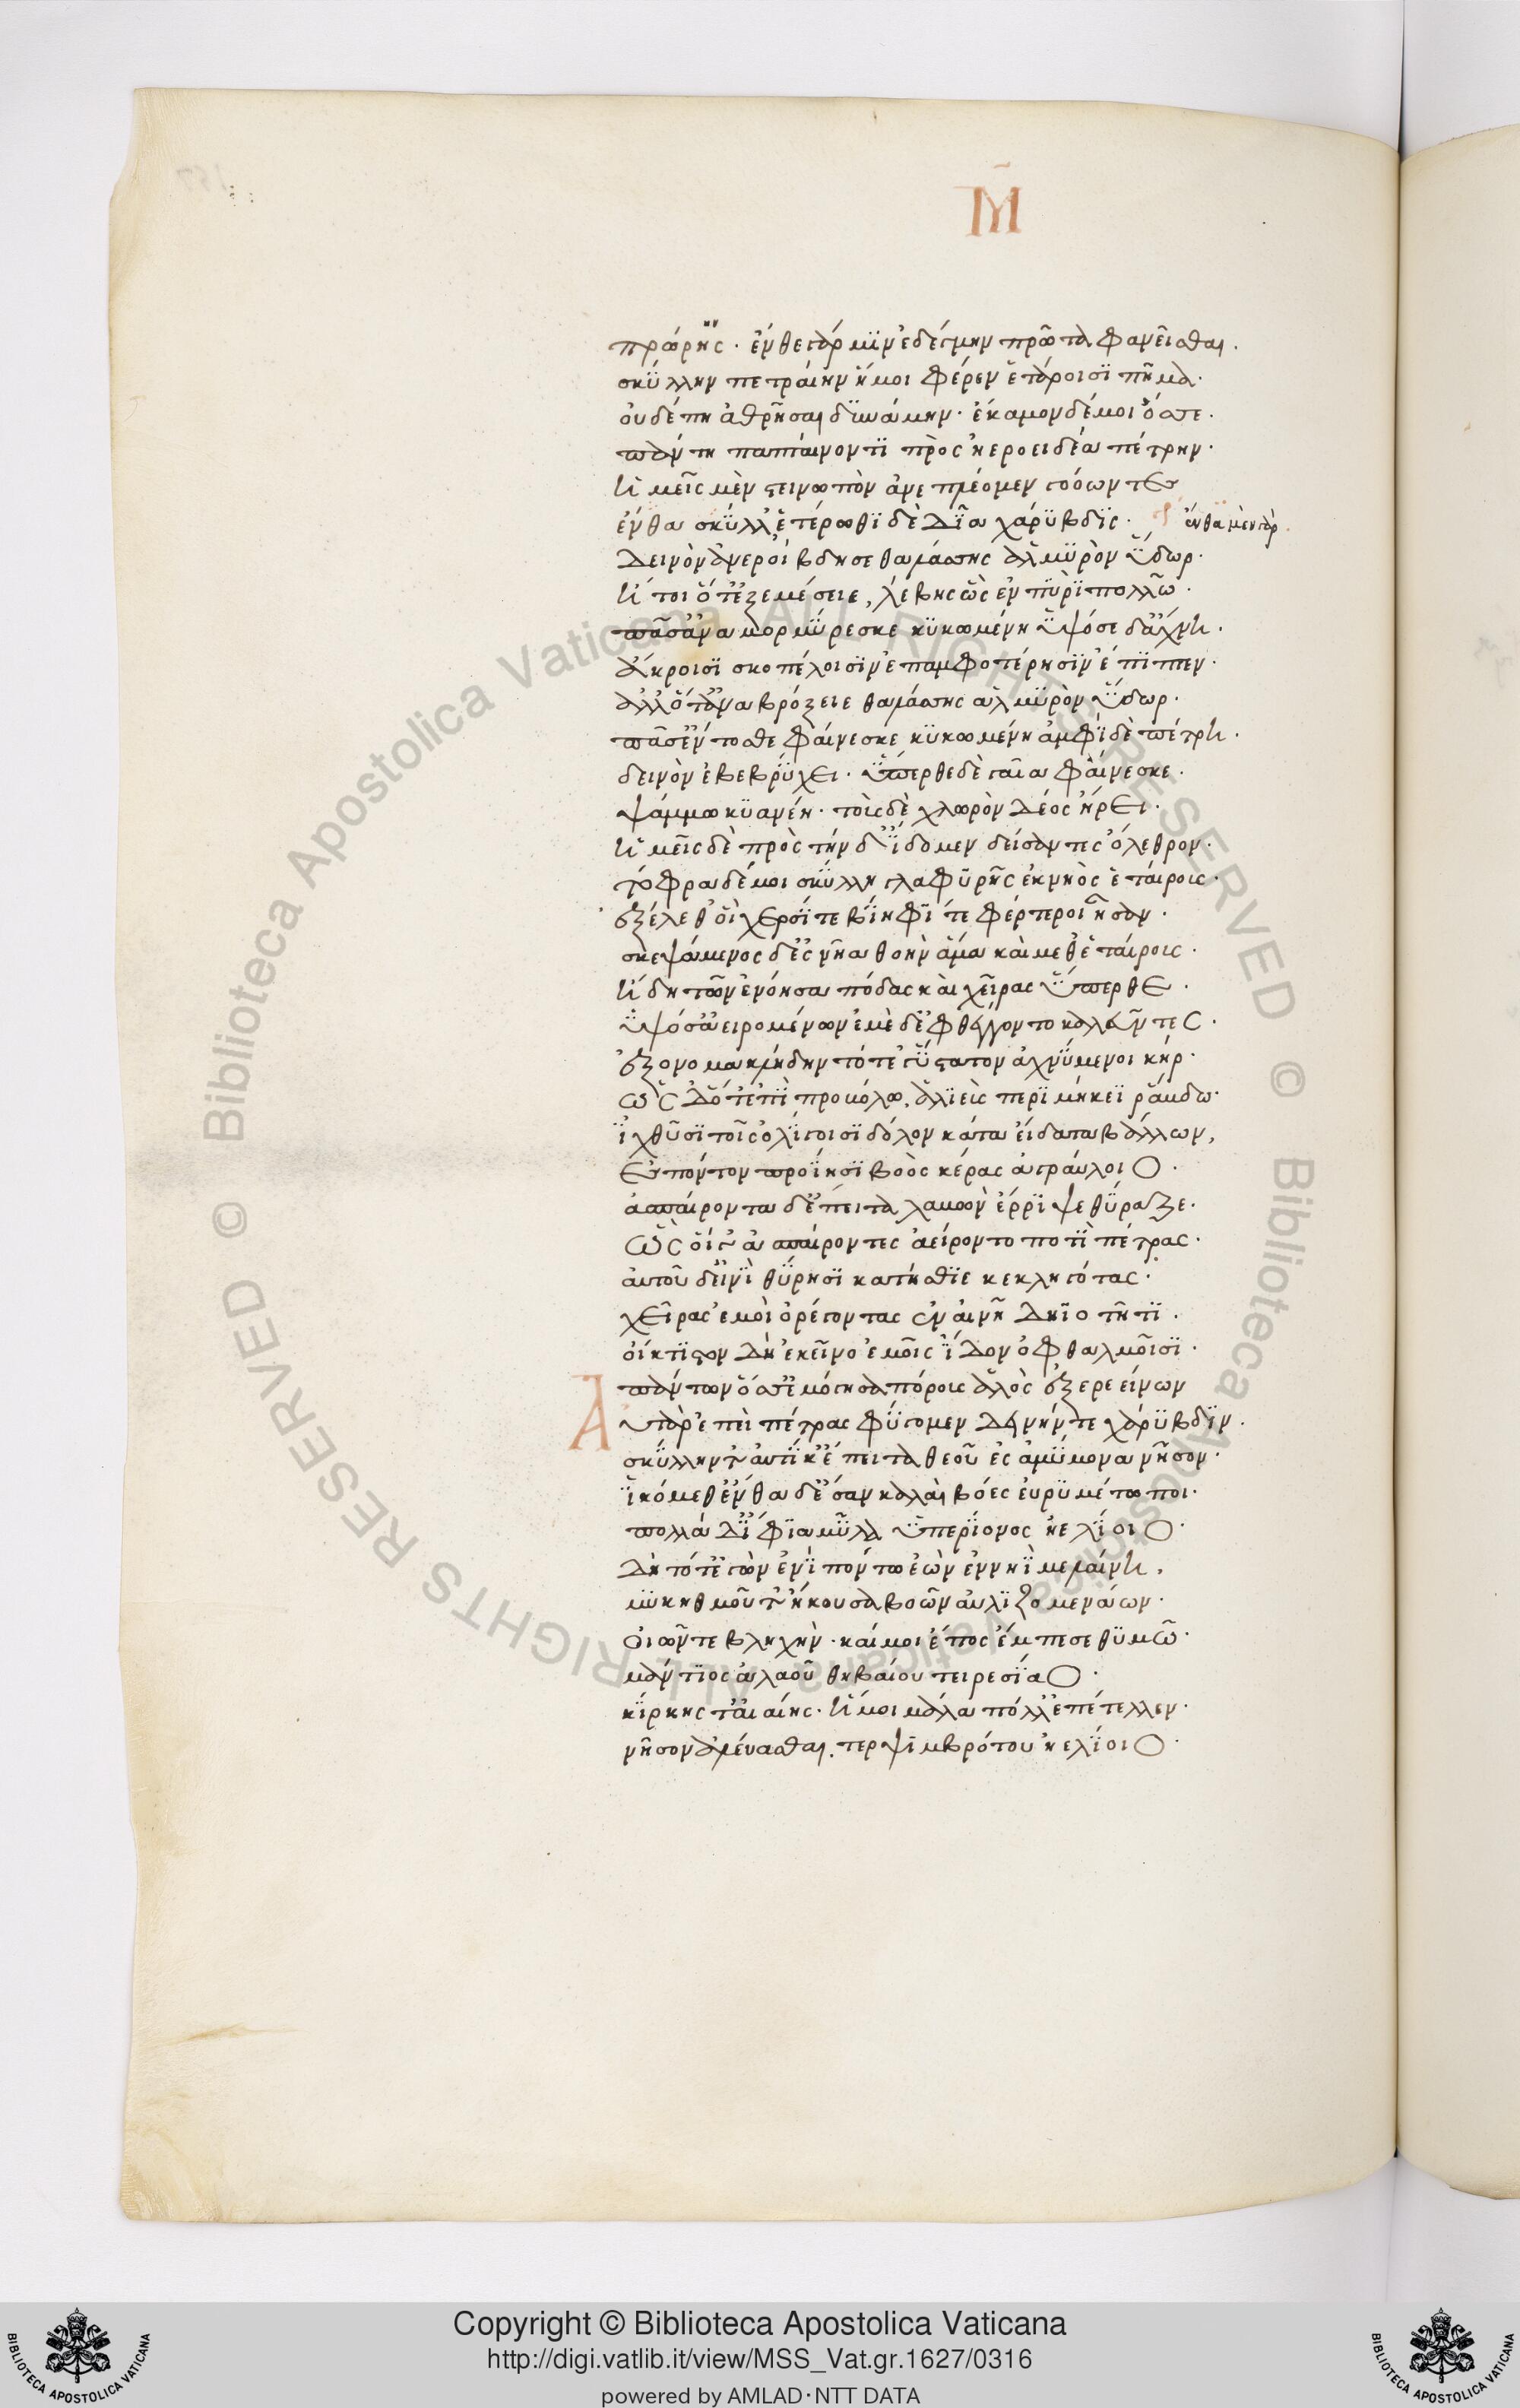 Μ̄
πρώρης · ἔνθεν γάρ μιν ἐδέγμην πρῶτα φανεῖσθαι ·
σκύλλην πετραίην ἥ μοι φέρεν ἑτάροισϊ πῆμα ·
οὐδέ πη ἀθρῆσαι δϋνάμην · ἔκαμον δέ μοι ὄσσε ·
πάντη παπταίνοντϊ πρὸς ἠεροειδέα πέτρην ·
ἡμεῖς μὲν στεινωπὸν ἀνεπλέομεν γοόωντες
ἔνθα σκύλλ' ἑτέρωθϊ δὲ δῖα χάρϋβδϊς · ἔνθα μὲν γὰρ
δεινὸν ἀνερροίβδησε θαλάσσης ἁλμϋρὸν ὕδωρ ·
ἤτοι ὅτ' ἐξεμέσειε, λέβης ὣς ἐν πϋρὶ πολλῶ ·
πᾶσ' ἀναμορμύρεσκε κϋκωμένη ὑψόσε δ' ἄχνη ·
ἄκροισϊ σκοπέλοισϊν ἐπ' αμφοτέρησϊν ἔπϊπτεν ·
ἀλλ' ὅτ' ἀναβρόξειε θαλάσσης ἁλμϋρὸν ὕδωρ ·
πᾶσ' ἔντοσθε φάνεσκε κϋκωμένη ἀμφὶ δὲ πέτρη ·
δεινὸν ἐβεβρύχει · ὑπερθε δὲ γαῖα φάνεσκε ·
ψάμμω κϋανέη · τοὺς δὲ χλωρὸν δέος ἥρει ·
ἡμεῖς δὲ πρὸς τὴν δ' ἴδομεν δείσαντες ὄλεθρον ·
τόφρα δέ μοι σκύλλη γλαφϋρῆς ἐκ νηὸς ἑταίρους ·
ἓξ ἕλεθ' οἳ χερσϊ τε βίηφϊ τε φέρτεροι ἦσαν ·
σκεψάμενος δ' ἐς νῆα θοὴν ἅμα καὶ μεθ' ἑταίρους ·
ἤδη τῶν ἐνόησα πόδας καὶ χεῖρας ὕπερθε ·
ὑψόσ' ἀειρομένων ἐμὲ δὲ φθέγγοντο καλεῦντες ·
ἐξονομακλήδην τότε γ' ὕστατον ἀχνύμενοι κῆρ ·
ὡς δ' ὅτ' ἐπὶ προβόλω, ἁλϊεὺς περϊμήκεϊ ράβδω ·
ἰχθύσϊ τοῖς ὀλίγοισϊ δόλον κατα εἴδατα βάλλων,
ἐς πόντον προΐησϊ βοὸς κέρας ἀγραύλοιο ·
ἀσπαίροντα δ' ἔπειτα λαβὼν ἔρρϊψε θύραζε ·
ὣς οἵ γ' ἀσπαίροντες ἀείροντο ποτὶ πέτρας ·
αὐτοῦ δ' εἰνὶ θύρησϊ κατήσθϊε κεκληγότας ·
χεῖρας ἐμοὶ ὀρέγοντας ἐν αἰνῆ δηϊοτῆτϊ ·
οἴκτϊστον δὴ ἐκεῖνο ἐμοῖς ἴδον ὀφθαλμοῖσϊ ·
πάντων ὅσσ' ἐμόγησα πόρους ἁλὸς ἐξερεείνων
Αὐτὰρ ἐπεὶ πέτρας φύγομεν δεινήν τε χάρϋβδϊν ·
σκύλλην τ' αὐτίκ' ἔπειτα θεοῦ ἐς ἀμύμονα νῆσον ·
ἱκόμεθ' ἔνθα δ' ἔσαν καλαὶ βόες εὐρϋμέτωποι ·
πολλὰ δ' ἴφϊα μῆλα ὑπερίονος ἠελίοιο ·
δὴ τότ' ἐγὼν ἐνὶ πόντω ἐὼν ἐν νηῒ μελαίνη,
μϋκηθμοῦ τ' ἤκουσα βοῶν αὐλϊζομενάων ·
οἰῶν τε βληχὴν · καί μοι ἔπος ἔμπεσε θϋμῶ ·
μάντϊος ἀλαοῦ θηβαίου τειρεσίαο ·
κίρκης τ' αἰαίης · ἥ μοι μάλα πόλλ' ἐπέτελλεν ·
νῆσον ἀλέυασθαι, τερψϊμβρότου ἠελίοιο ·
Copyright © Biblioteca Apostolica Vaticana
http://digi.vatlib.it/view/MSS_Vat.gr.1627/0316
powered by AMLAD·NTT DATA